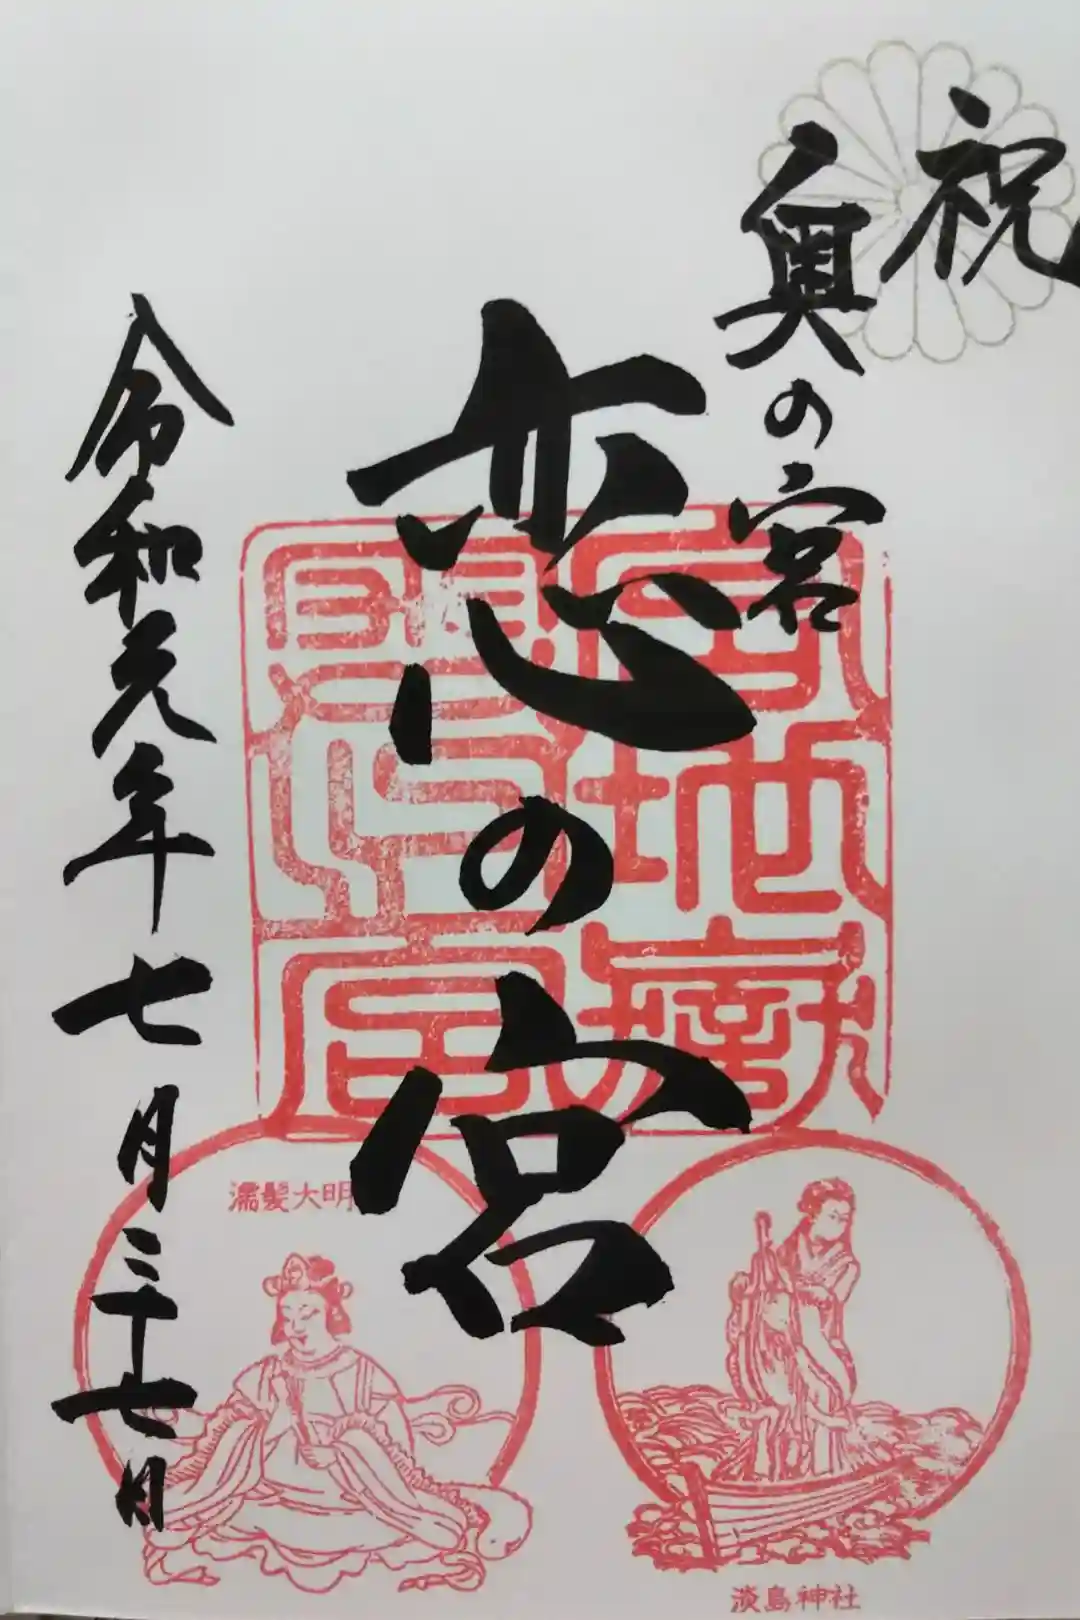 祝
奥の宮
恋の宮
令和元年七月二十七日
濡髪大明
淡島神社